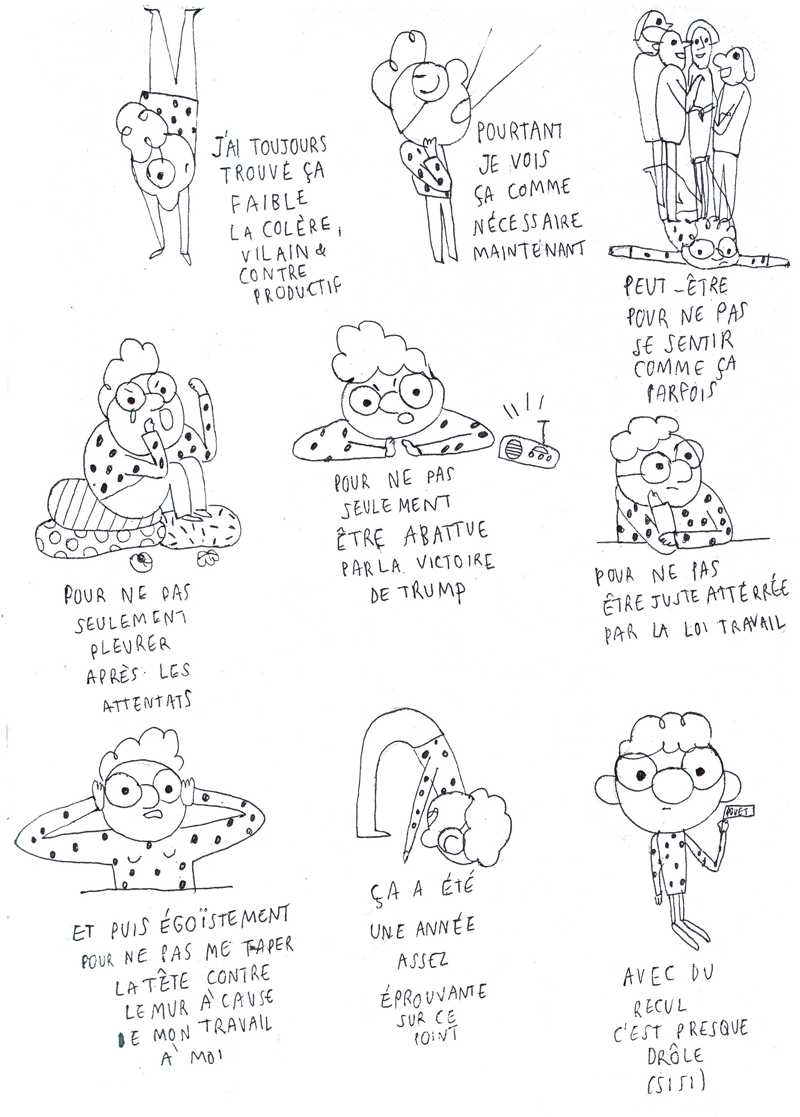 J'AI TOUJOURS
TROUVÉ ÇA
FAIBLE
LA COLÈRE,
VILAIN &
CONTRE
PRODUCTIF
POURTANT
JE VOIS
ÇA COMME
NÉCESSAIRE
MAINTENANT
PEUT-ÊTRE
POUR NE PAS
SE SENTIR
COMME ÇA
PARFOIS
POUR NE PAS
SEULEMENT
PLEURER
APRÈS LES
ATTENTATS
POUR NE PAS
SEULEMENT
ÊTRE ABATTUE
PAR LA VICTOIRE
DE TRUMP
POUR NE PAS
ÊTRE JUSTE ATTÉRRÉE
PAR LA LOI TRAVAIL
ET PUIS ÉGOÏSTEMENT
POUR NE PAS ME TAPER
LA TÊTE CONTRE
LE MUR À CAUSE
DE MON TRAVAIL
À MOI
ÇA A ÉTÉ
UNE ANNÉE
ASSEZ
ÉPROUVANTE
SUR CE
POINT
POUET
AVEC DU
RECUL
C'EST PRESQUE
DRÔLE
(SI SI)